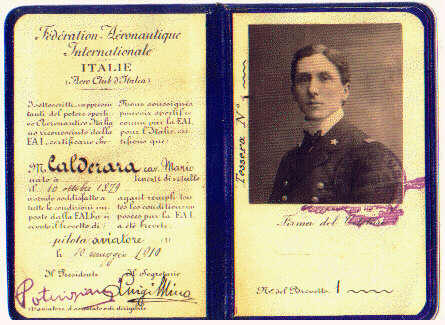 Fédération Aéronautique
Internationale
ITALIE
(Aero Club d'Italia)
I sottoscritti, rappresen
tanti del potere sporti
vo Aeronautico Italia
no riconosciuto dalla
F.A.I., certificano che
Nous soussignés
pouvoirs sportifs
connu par la F.A.I.
pour l'Italie, cer
tifions que
M Calderara cav. Mario
nato a
il 10 ottobre 1879
avendo soddisfatto a
tutte le condizioni im
poste dalla F.A.I. ha ri
cevuto il brevetto di:
ayant rempli tou
tes les conditions im
posées par la F.A.I.
a été breveté:
pilota aviatore
il 10 maggio 1910
Il Presidente Il Segretario
Luigi Mina
Tessera N° 1
Firma del
N° del Brevetto 1